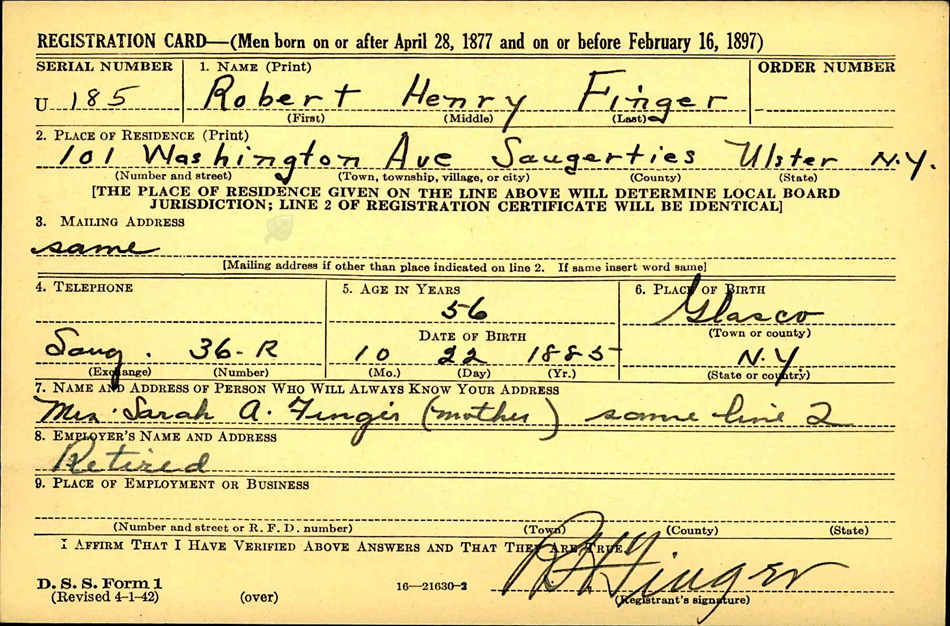 REGISTRATION CARD—(Men born on or after April 28, 1877 and on or before February 16, 1897)
SERIAL NUMBER 1. NAME (Print) ORDER NUMBER
U 185 Robert Henry Finger
(First) (Middle) (Last)
2. PLACE OF RESIDENCE (Print)
101 Washington Ave Saugerties Ulster N.Y.
(Number and street) (Town, township, village, or city) (County) (State)
[THE PLACE OF RESIDENCE GIVEN ON THE LINE ABOVE WILL DETERMINE LOCAL BOARD
JURISDICTION; LINE 2 OF REGISTRATION CERTIFICATE WILL BE IDENTICAL]
3. MAILING ADDRESS
same
[Mailing address if other than place indicated on line 2. If same insert word same]
4. TELEPHONE 5. AGE IN YEARS 6. PLACE OF BIRTH
56 Glasco
DATE OF BIRTH (Town or county)
Saug. 36-R 10 22 1885 N.Y.
(Exchange) (Number) (Mo.) (Day) (Yr.) (State or country)
7. NAME AND ADDRESS OF PERSON WHO WILL ALWAYS KNOW YOUR ADDRESS
Mrs. Sarah A. Finger (mother) same line 2
8. EMPLOYER'S NAME AND ADDRESS
Retired
9. PLACE OF EMPLOYMENT OR BUSINESS
(Number and street or R. F. D. number) (Town) (County) (State)
I AFFIRM THAT I HAVE VERIFIED ABOVE ANSWERS AND THAT THEY ARE TRUE.
D. S. S. Form 1 16—21630-2 R H Finger
(Revised 4-1-42) (over) (Registrant's signature)